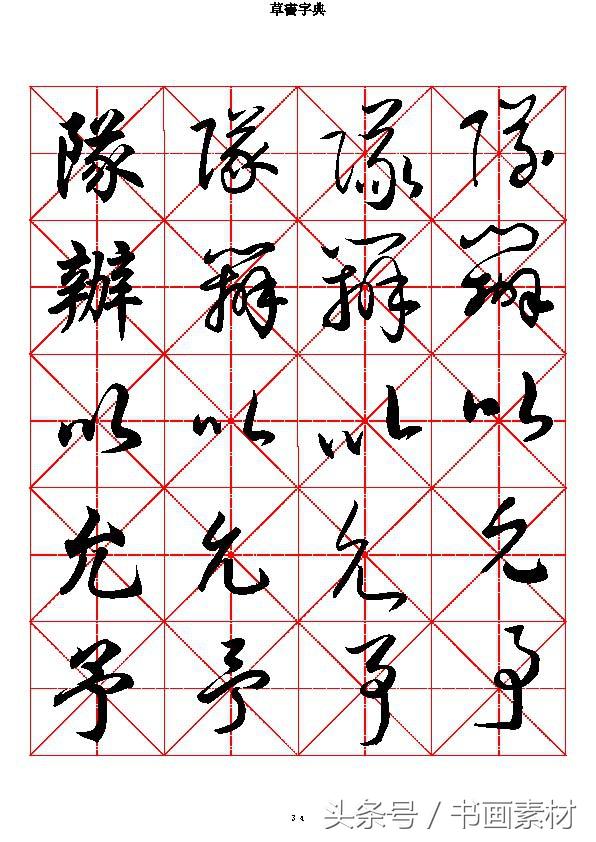 草書字典
隊 隊 隊 隊
辦 辦 辦 辦
以 以 以 以
允 允 允 允
予 予 予 予
34
头条号 / 书画素材